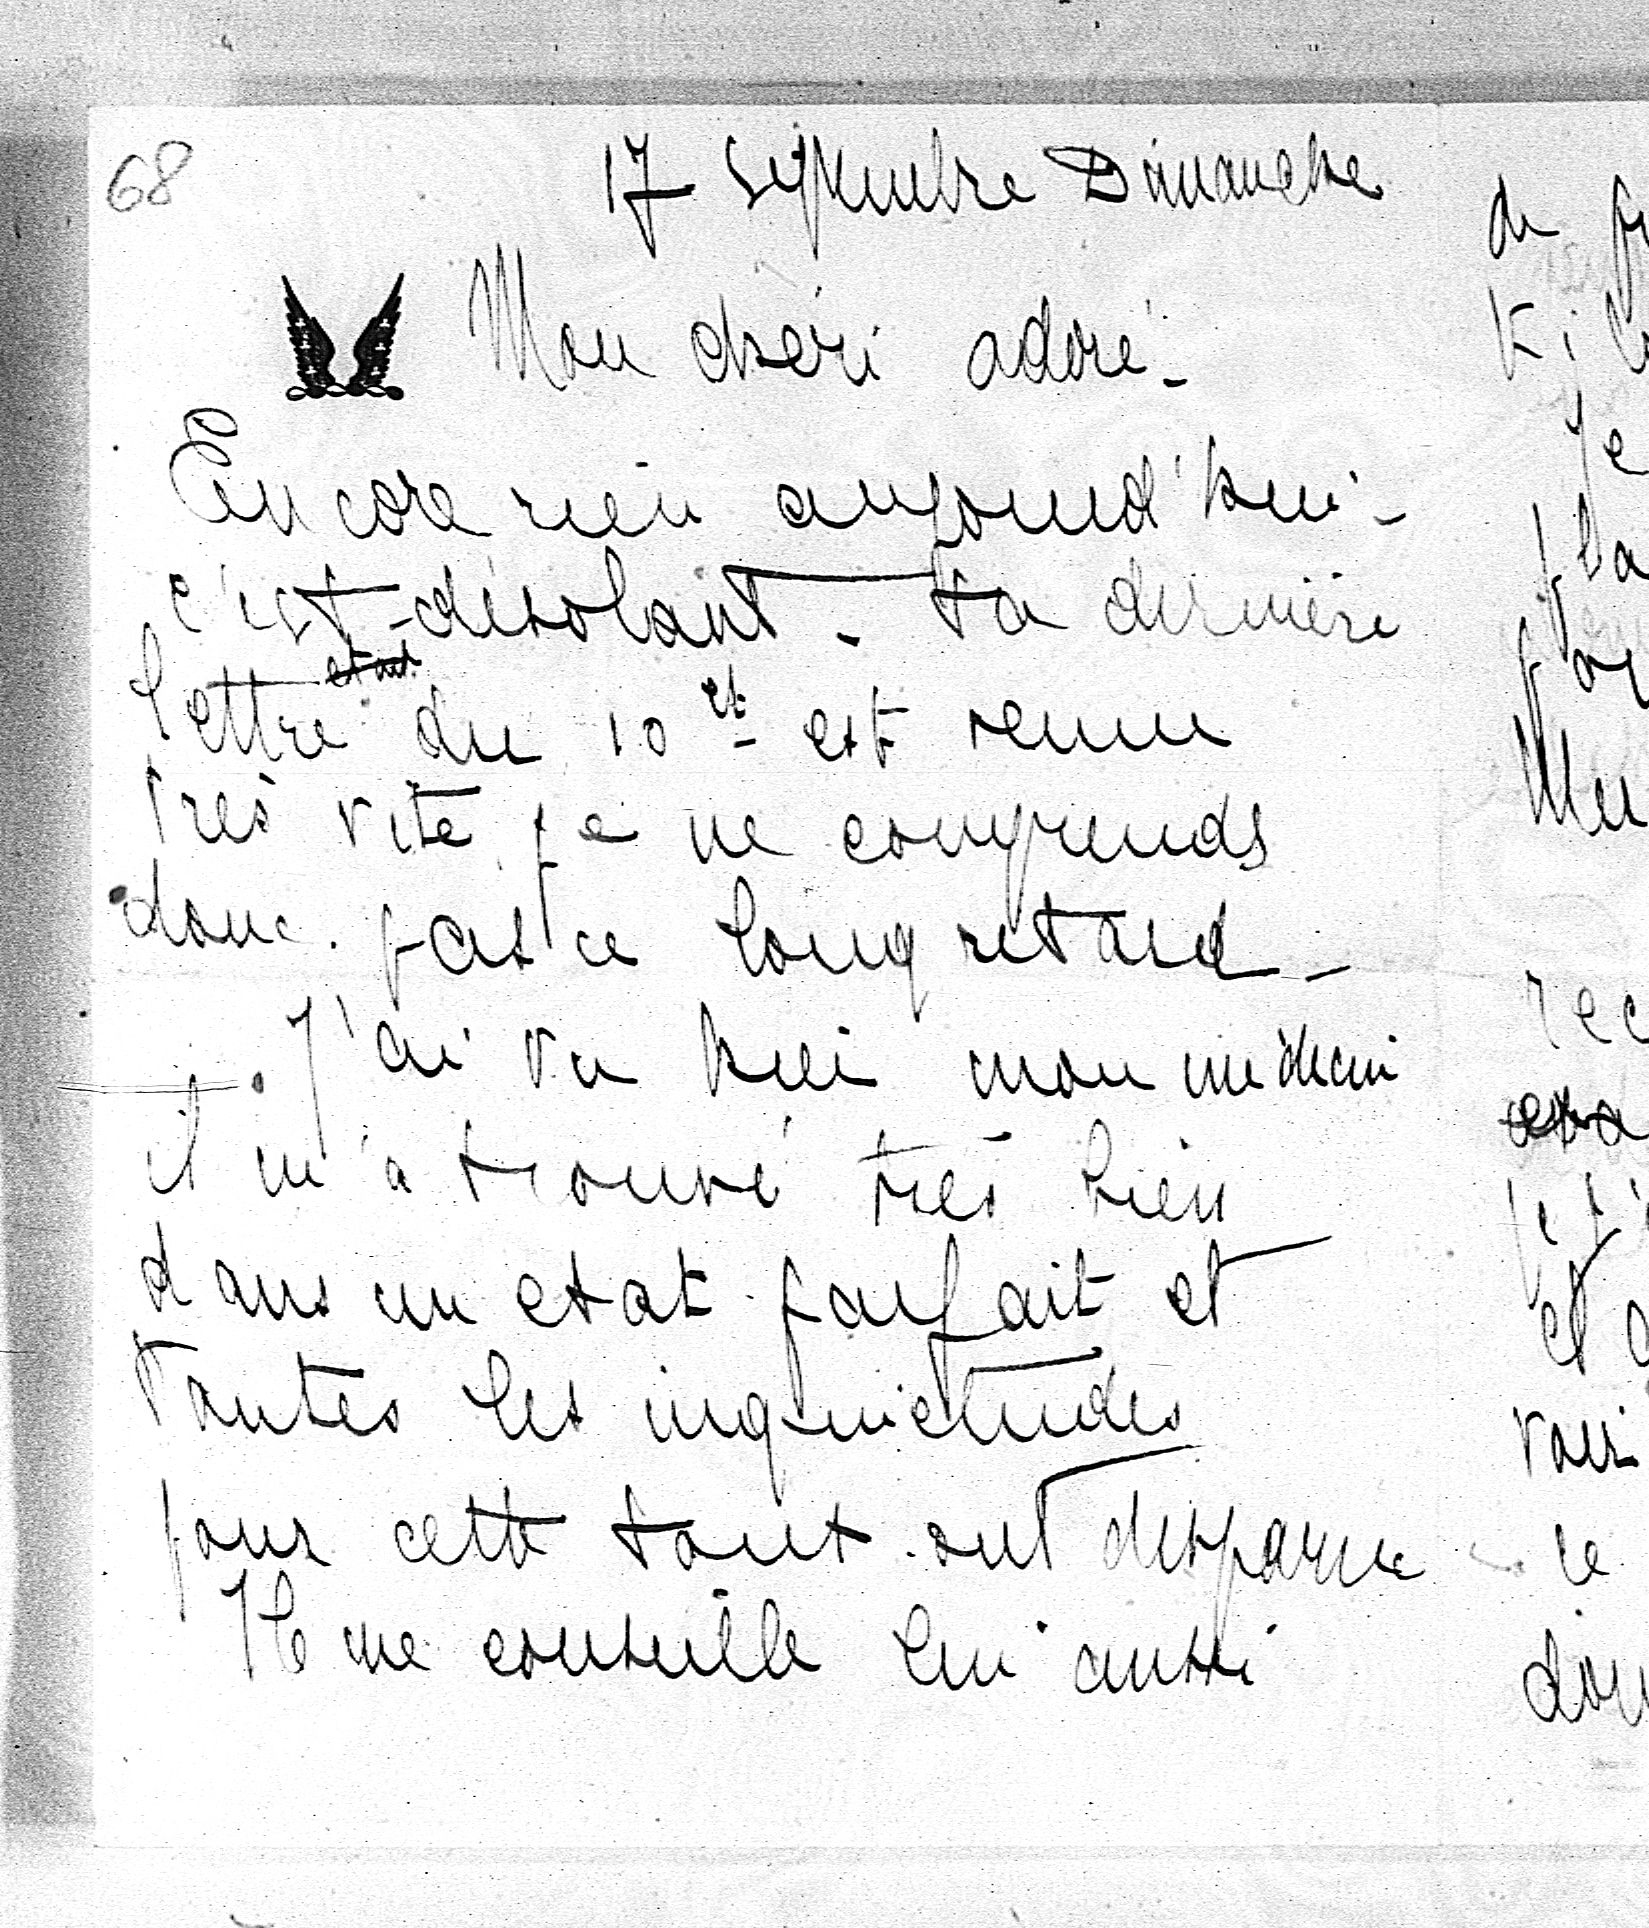 68
17 Septembre Dimanche
Mon chéri adoré -
Encore rien aujourd'hui -
c'est désolant. ta dernière
lettre du 10 est venue
très vite je ne comprends
donc pas ce long retard -
J'ai vu hier mon médecin
il m'a trouvé très bien
dans un etat parfait et
toutes les inquietudes
pour cette toux ont disparue
Il me conseille lui aussi
de
Je
et
voir
ce